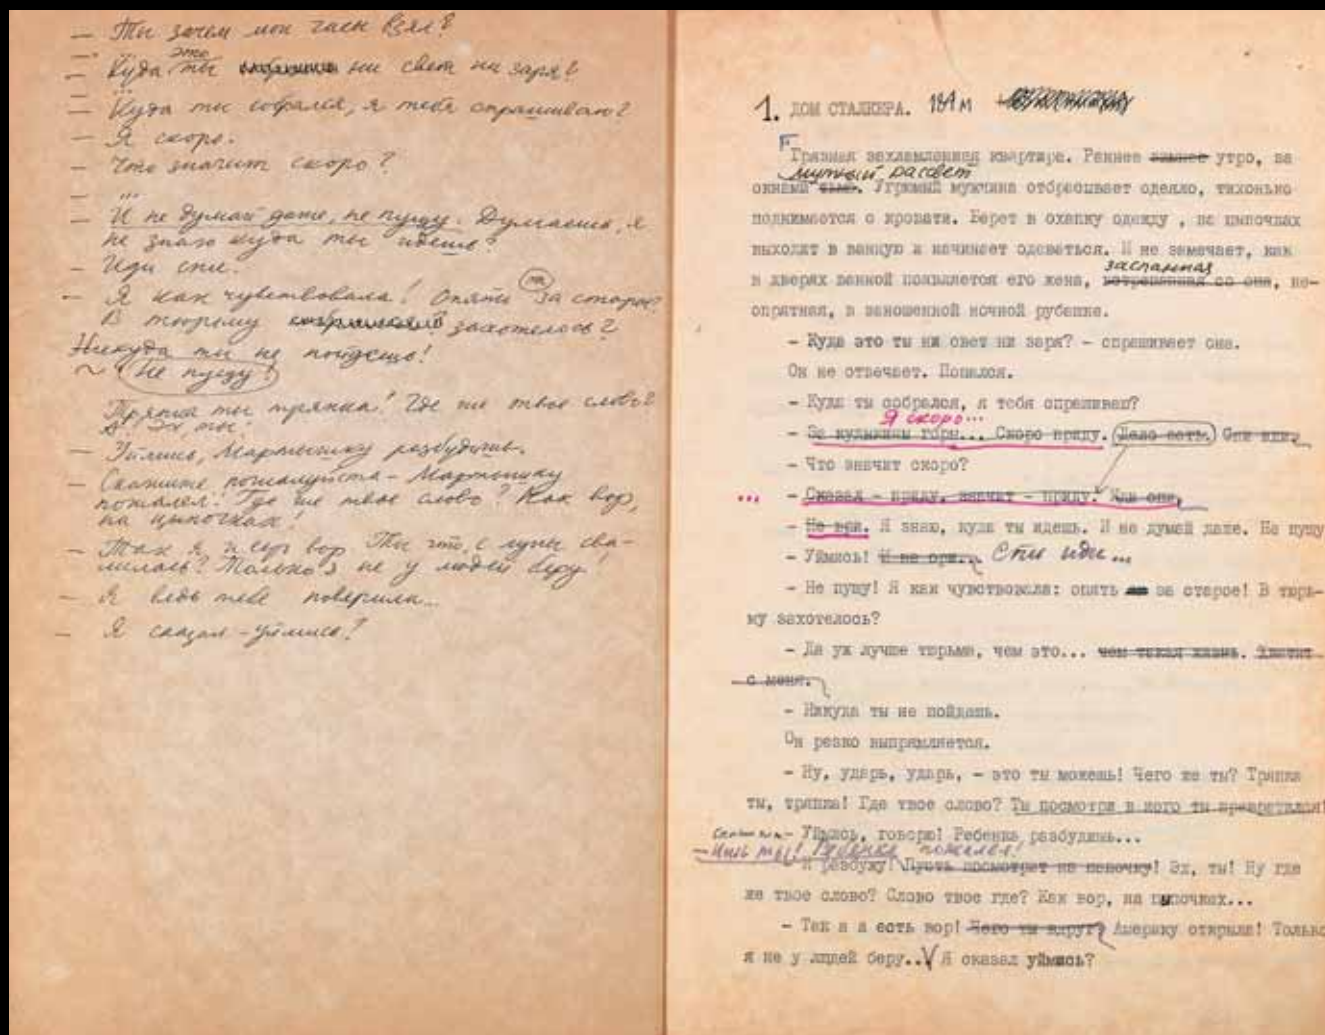 — Ты зачем мои часы взял?
— ...
— Куда это ты собрался ни свет ни заря?
— ...
— Куда ты собрался, я тебя спрашиваю?
— Я скоро.
— Что значит скоро?
— ...
— И не думай даже, не пущу. Думаешь, я
не знаю куда ты идешь?
— Иди спи.
— Я как чувствовала! Опять на за старое?
В тюрьму захотелось?
Никуда ты не пойдешь!
~ Не пущу!
Тряпка ты тряпка! Где же твое слово?
Эх ты!
— Уймись, Мартышку разбудишь.
— Скажите пожалуйста – Мартышку
пожалел! Где же твое слово? Как вор,
на цыпочках!
— Так я и есть вор. Ты что, с луны сва-
лилась? Только я не у людей беру!
— Я ведь тебе поверила...
— Я сказал – уймись?
1. ДОМ СТАЛКЕРА. 184 м
Грязная захламленная квартира. Раннее зимнее утро, за
мутный рассвет
окнами тьма. Угрюмый мужчина отбрасывает одеяло, тихонько
поднимается с кровати. Берет в охапку одежду , на цыпочках
выходит в ванную и начинает одеваться. И не замечает, как
заспанная
в дверях ванной появляется его жена, встрепанная со сна, не-
опрятная, в заношенной ночной рубашке.
- Куда это ты ни свет ни заря? - спрашивает она.
Он не отвечает. Попался.
- Куда ты собрался, я тебя спрашиваю?
Я скоро...
- За кудыкины горы... Скоро приду. Дело есть. Спи иди.
- Что значит скоро?
... - Сказал - приду, значит - приду. Иди спи.
- Не ври. Я знаю, куда ты идешь. И не думай даже. Не пущу
- Уймись! И не ори... Спи иди...
- Не пущу! Я как чувствовала: опять за старое! В тюрь-
му захотелось?
- Да уж лучше тюрьма, чем это... чем такая жизнь. Хватит
с меня.
- Никуда ты не пойдешь.
Он резко выпрямляется.
- Ну, ударь, ударь, - это ты можешь! Чего же ты? Тряпка
ты, тряпка! Где твое слово? Ты посмотри в кого ты превратился!
- Уймись, говорю! Ребенка разбудишь...
- Ишь ты! Ребенка пожалел!
- И разбужу! Пусть посмотрит на папочку! Эх, ты! Ну где
же твое слово? Слово твое где? Как вор, на цыпочках...
- Так я и есть вор! Чего ты вдруг? Америку открыла! Только
я не у людей беру... Я сказал уймись?